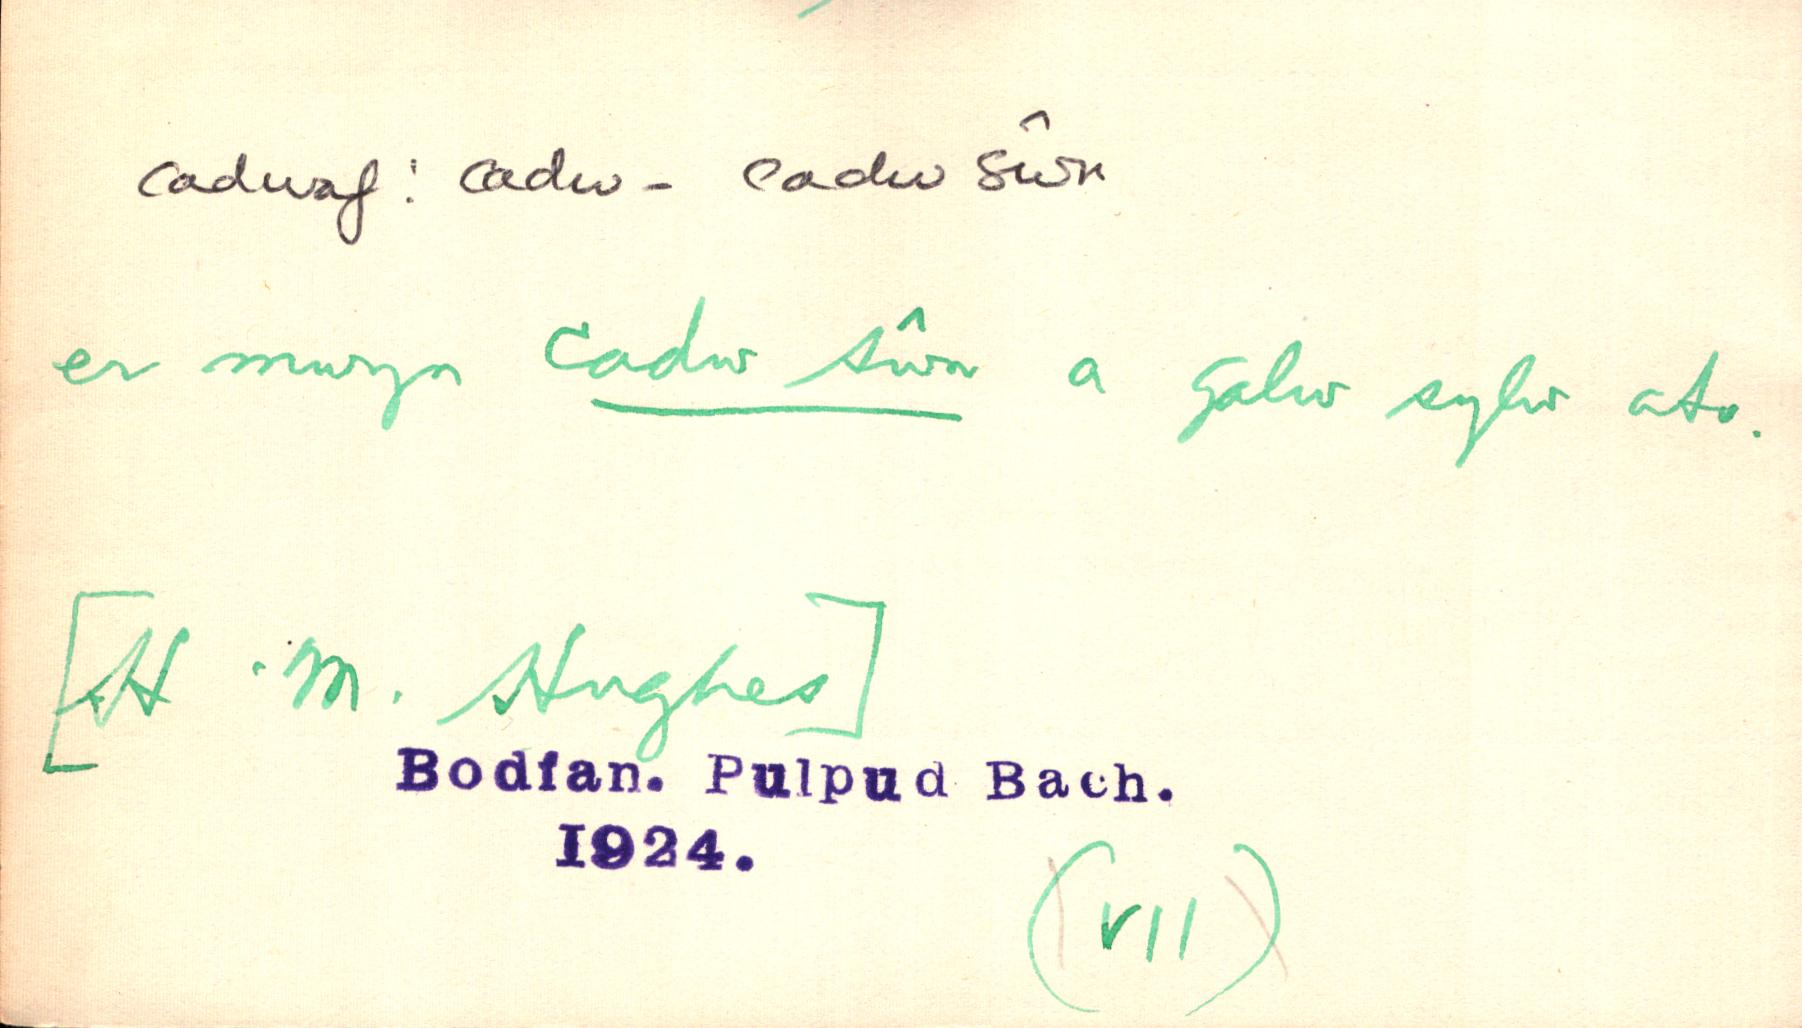 cadwaf: cadw - cadw sŵn
er mwyn cadw sŵn a galw sylw ato.
[H. M. Hughes]
Bodfan. Pulpud Bach.
1924.
(VII)